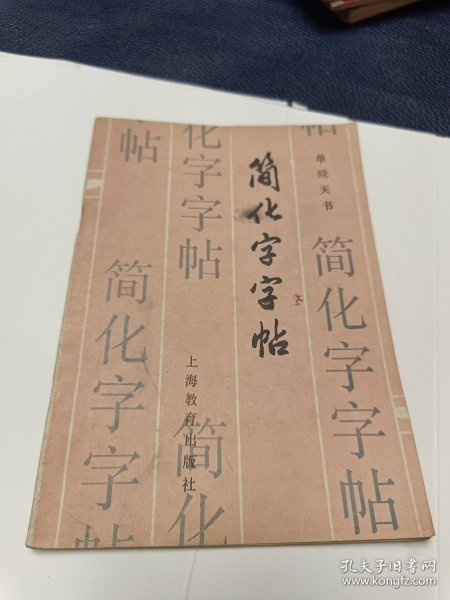 单晓天书
简化字字帖
上海教育出版社
帖
化字字帖
帖
简化字字帖
简化
简化字字帖
孔夫子旧书网
www.kongfz.com